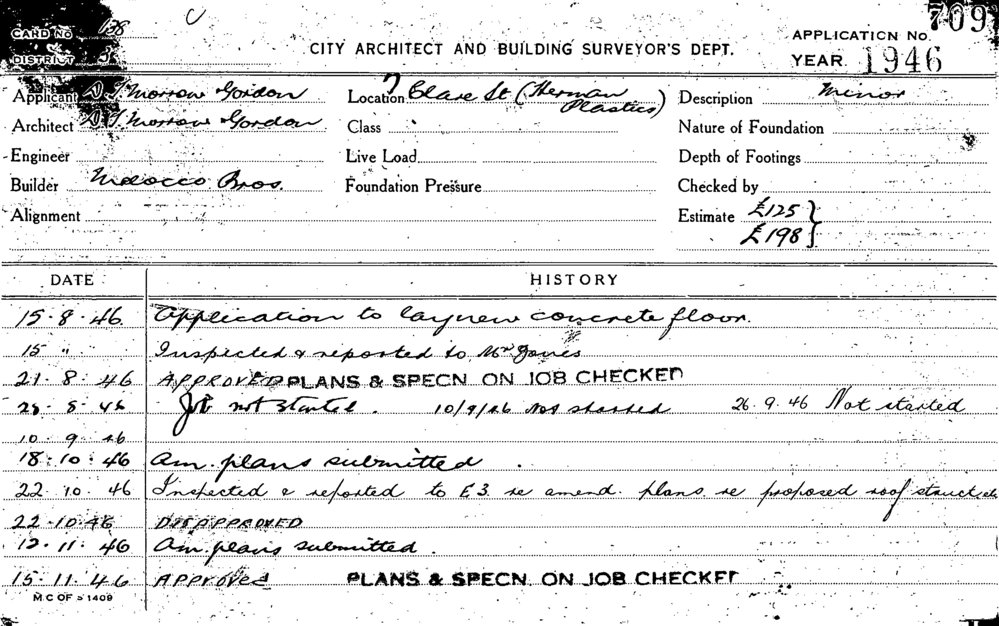 CARD NO. 138
DISTRICT 3
CITY ARCHITECT AND BUILDING SURVEYOR'S DEPT.
APPLICATION No. 709
YEAR 1946
Applicant D. T. Morrow Gordon
Location 7 Clare St (Herman Plastics)
Description Minor
Architect D. T. Morrow Gordon
Class
Nature of Foundation
Engineer
Live Load
Depth of Footings
Builder Bros.
Foundation Pressure
Checked by
Alignment
Estimate £125 }
£198 }
DATE HISTORY
15.8.46. Application to lay new concrete floor.
15 " " Inspected & reported to Mr Jones
21.8.46 APPROVED PLANS & SPECN. ON JOB CHECKED
28.8.46 Job not started. 10/9/46 Not started 26.9.46 Not started
10.9.46
18.10.46 Am. plans submitted.
22.10.46 Inspected & reported to E3. re amend. plans. re proposed roof struct.
22.10.46 DISAPPROVED
12.11.46 Am. plans submitted.
15.11.46 APPROVED PLANS & SPECN. ON JOB CHECKED
M.C OF 1409